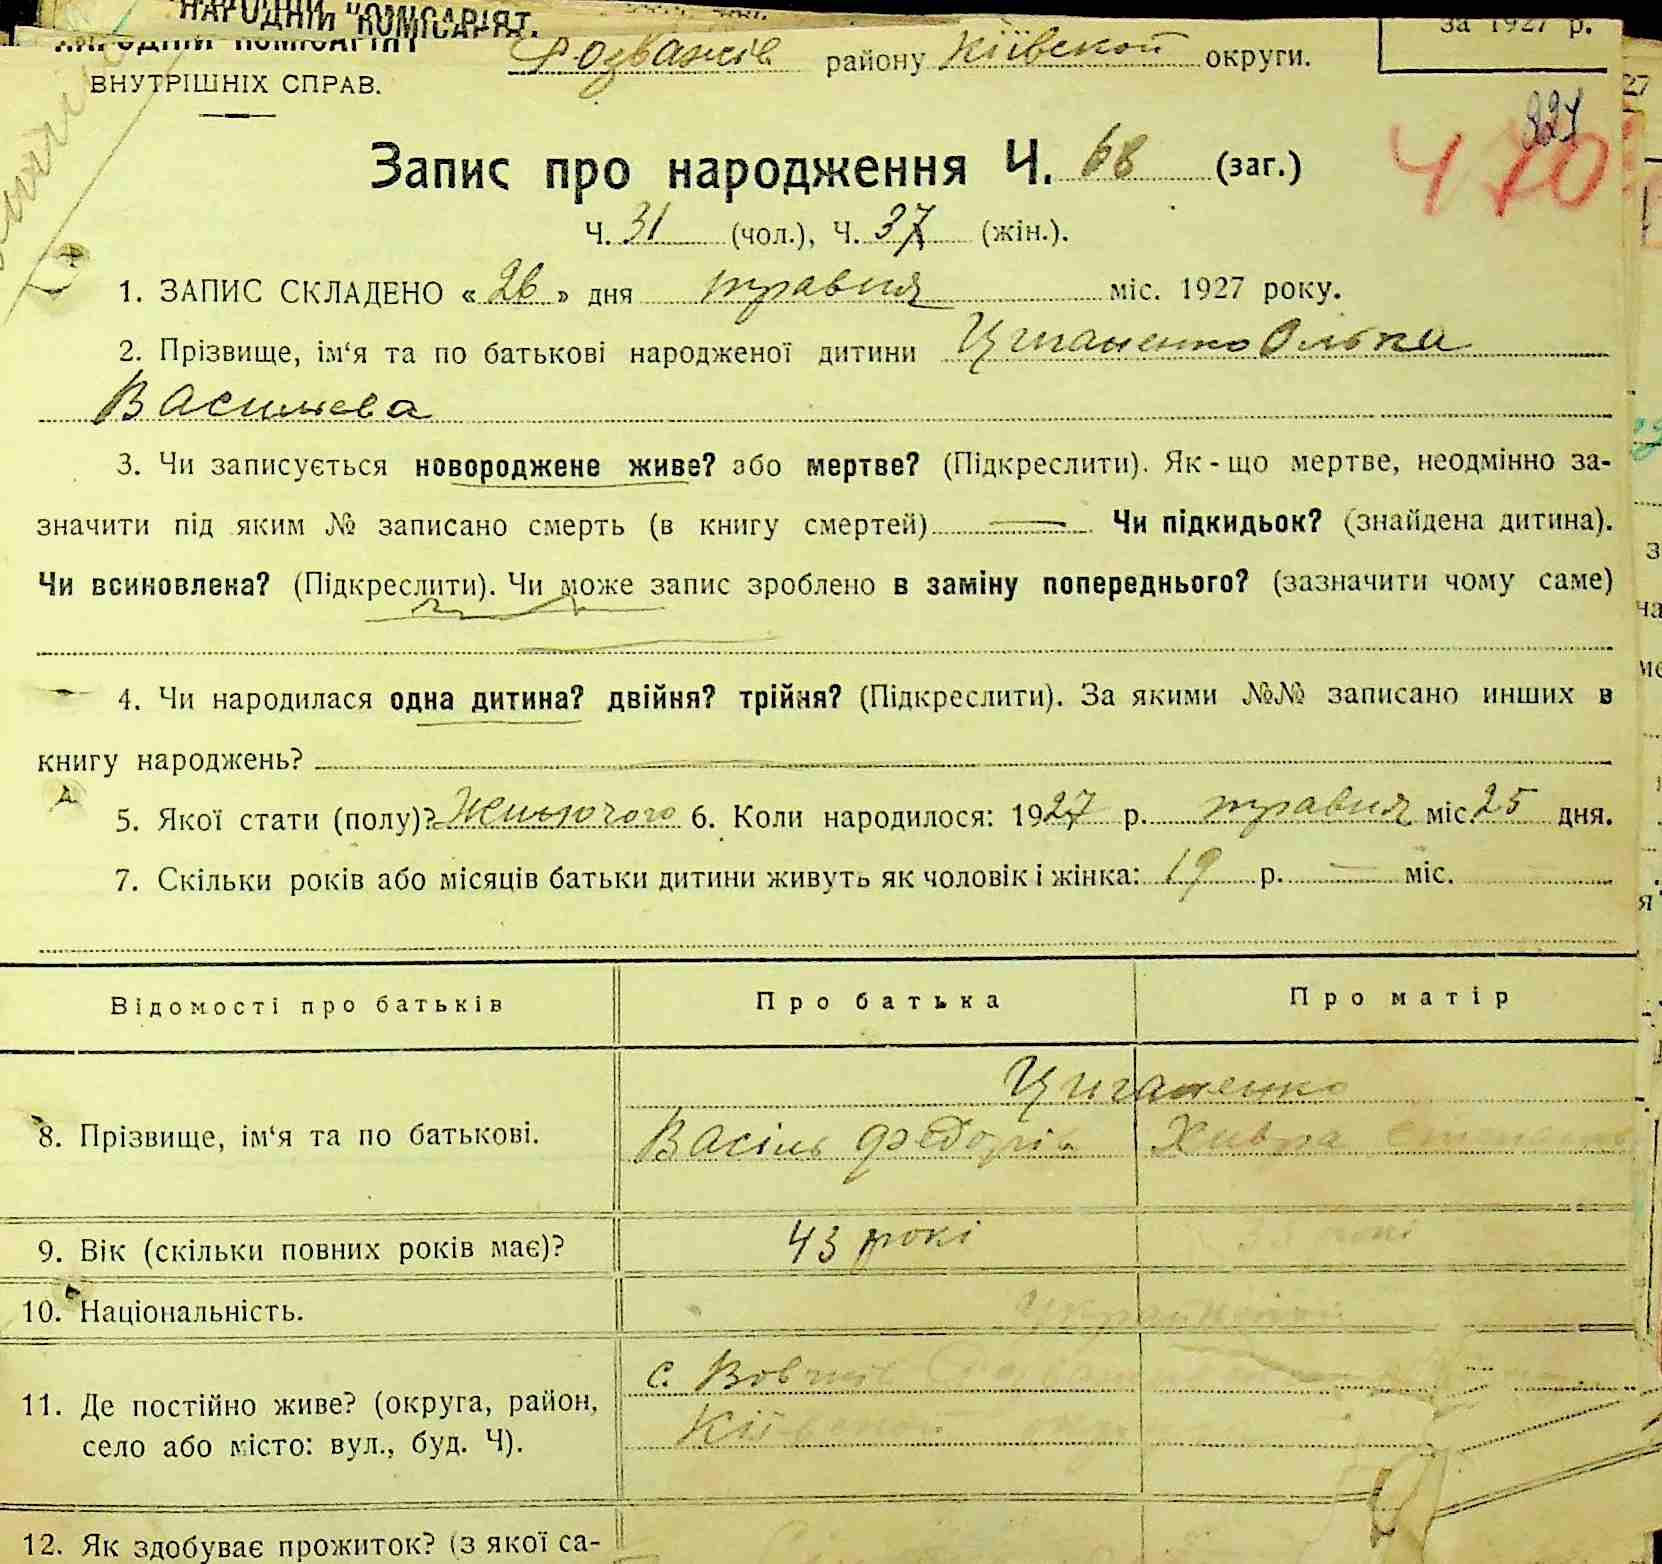 НАРОДНИЙ КОМІСАРІЯТ
НАРОДНИЙ КОМІСАРІЯТ
за 1927 р.
Розважів району Київской округи.
ВНУТРІШНІХ СПРАВ.
227
470
Запис про народження Ч. 68 (заг.)
Ч. 31 (чол.), Ч. 37 (жін.).
1. ЗАПИС СКЛАДЕНО « 26 » дня травня міс. 1927 року.
2. Прізвище, ім‘я та по батькові народженої дитини Циганенко Олька
Василєва
3. Чи записується новороджене живе? або мертве? (Підкреслити). Як-що мертве, неодмінно за-
значити під яким № записано смерть (в книгу смертей) — Чи підкидьок? (знайдена дитина).
Чи всиновлена? (Підкреслити). Чи може запис зроблено в заміну попереднього? (зазначити чому саме)
4. Чи народилася одна дитина? двійня? трійня? (Підкреслити). За якими №№ записано инших в
книгу народжень?
5. Якої стати (полу)? Жиночого 6. Коли народилося: 1927 р. травня міс. 25 дня.
7. Скільки років або місяців батьки дитини живуть як чоловік і жінка: 19 р. — міс.
Відомості про батьків Про батька Про матір
Циганенко
8. Прізвище, ім‘я та по батькові. Васіль Федорів Хивра
9. Вік (скільки повних років має)? 43 рокі
10. Національність.
11. Де постійно живе? (округа, район, с.
село або місто: вул., буд. Ч). Київской
12. Як здобуває прожиток? (з якої са-